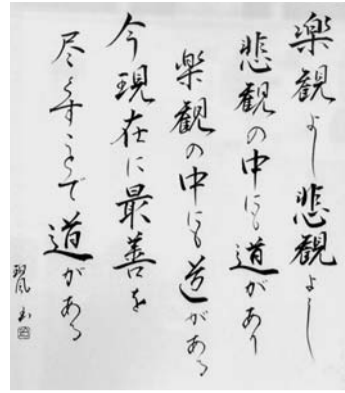 楽観よし悲観よし
悲観の中にも道があり
楽観の中にも道がある
今現在に最善を
尽くすことで道がある